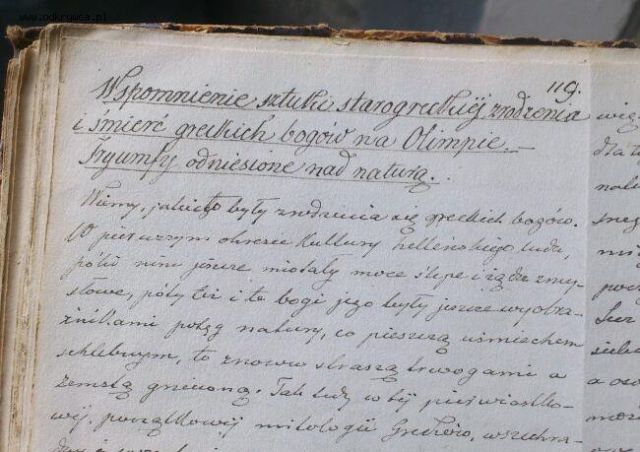 www.odkrywca.pl
119.
Wspomnienie sztuki starogreckiéj zrodzenia
i śmierć greckich bogów na Olimpie. —
Tryumfy odniesione nad naturą.
Wiemy, jakie to były zrodzenia się greckich bogów.
W pierwszym okresie kultury helleńskiego ludu,
póki nim jeszcze miotały moce ślepe i żądze zmy-
słowe, póty też i te bogi jego były jeszcze wyobra-
źnikami potęg natury, co pieszczą uśmiechem
schlebnym, to znowu straszą trwogami a
zemstą gniewną. Tak tedy w téj pierwiastko-
wéj, początkowéj mitologii Greków, wszechwła-
wię
dla
nale
sneg
mit
poc
Lecz
siebie
a ow
może